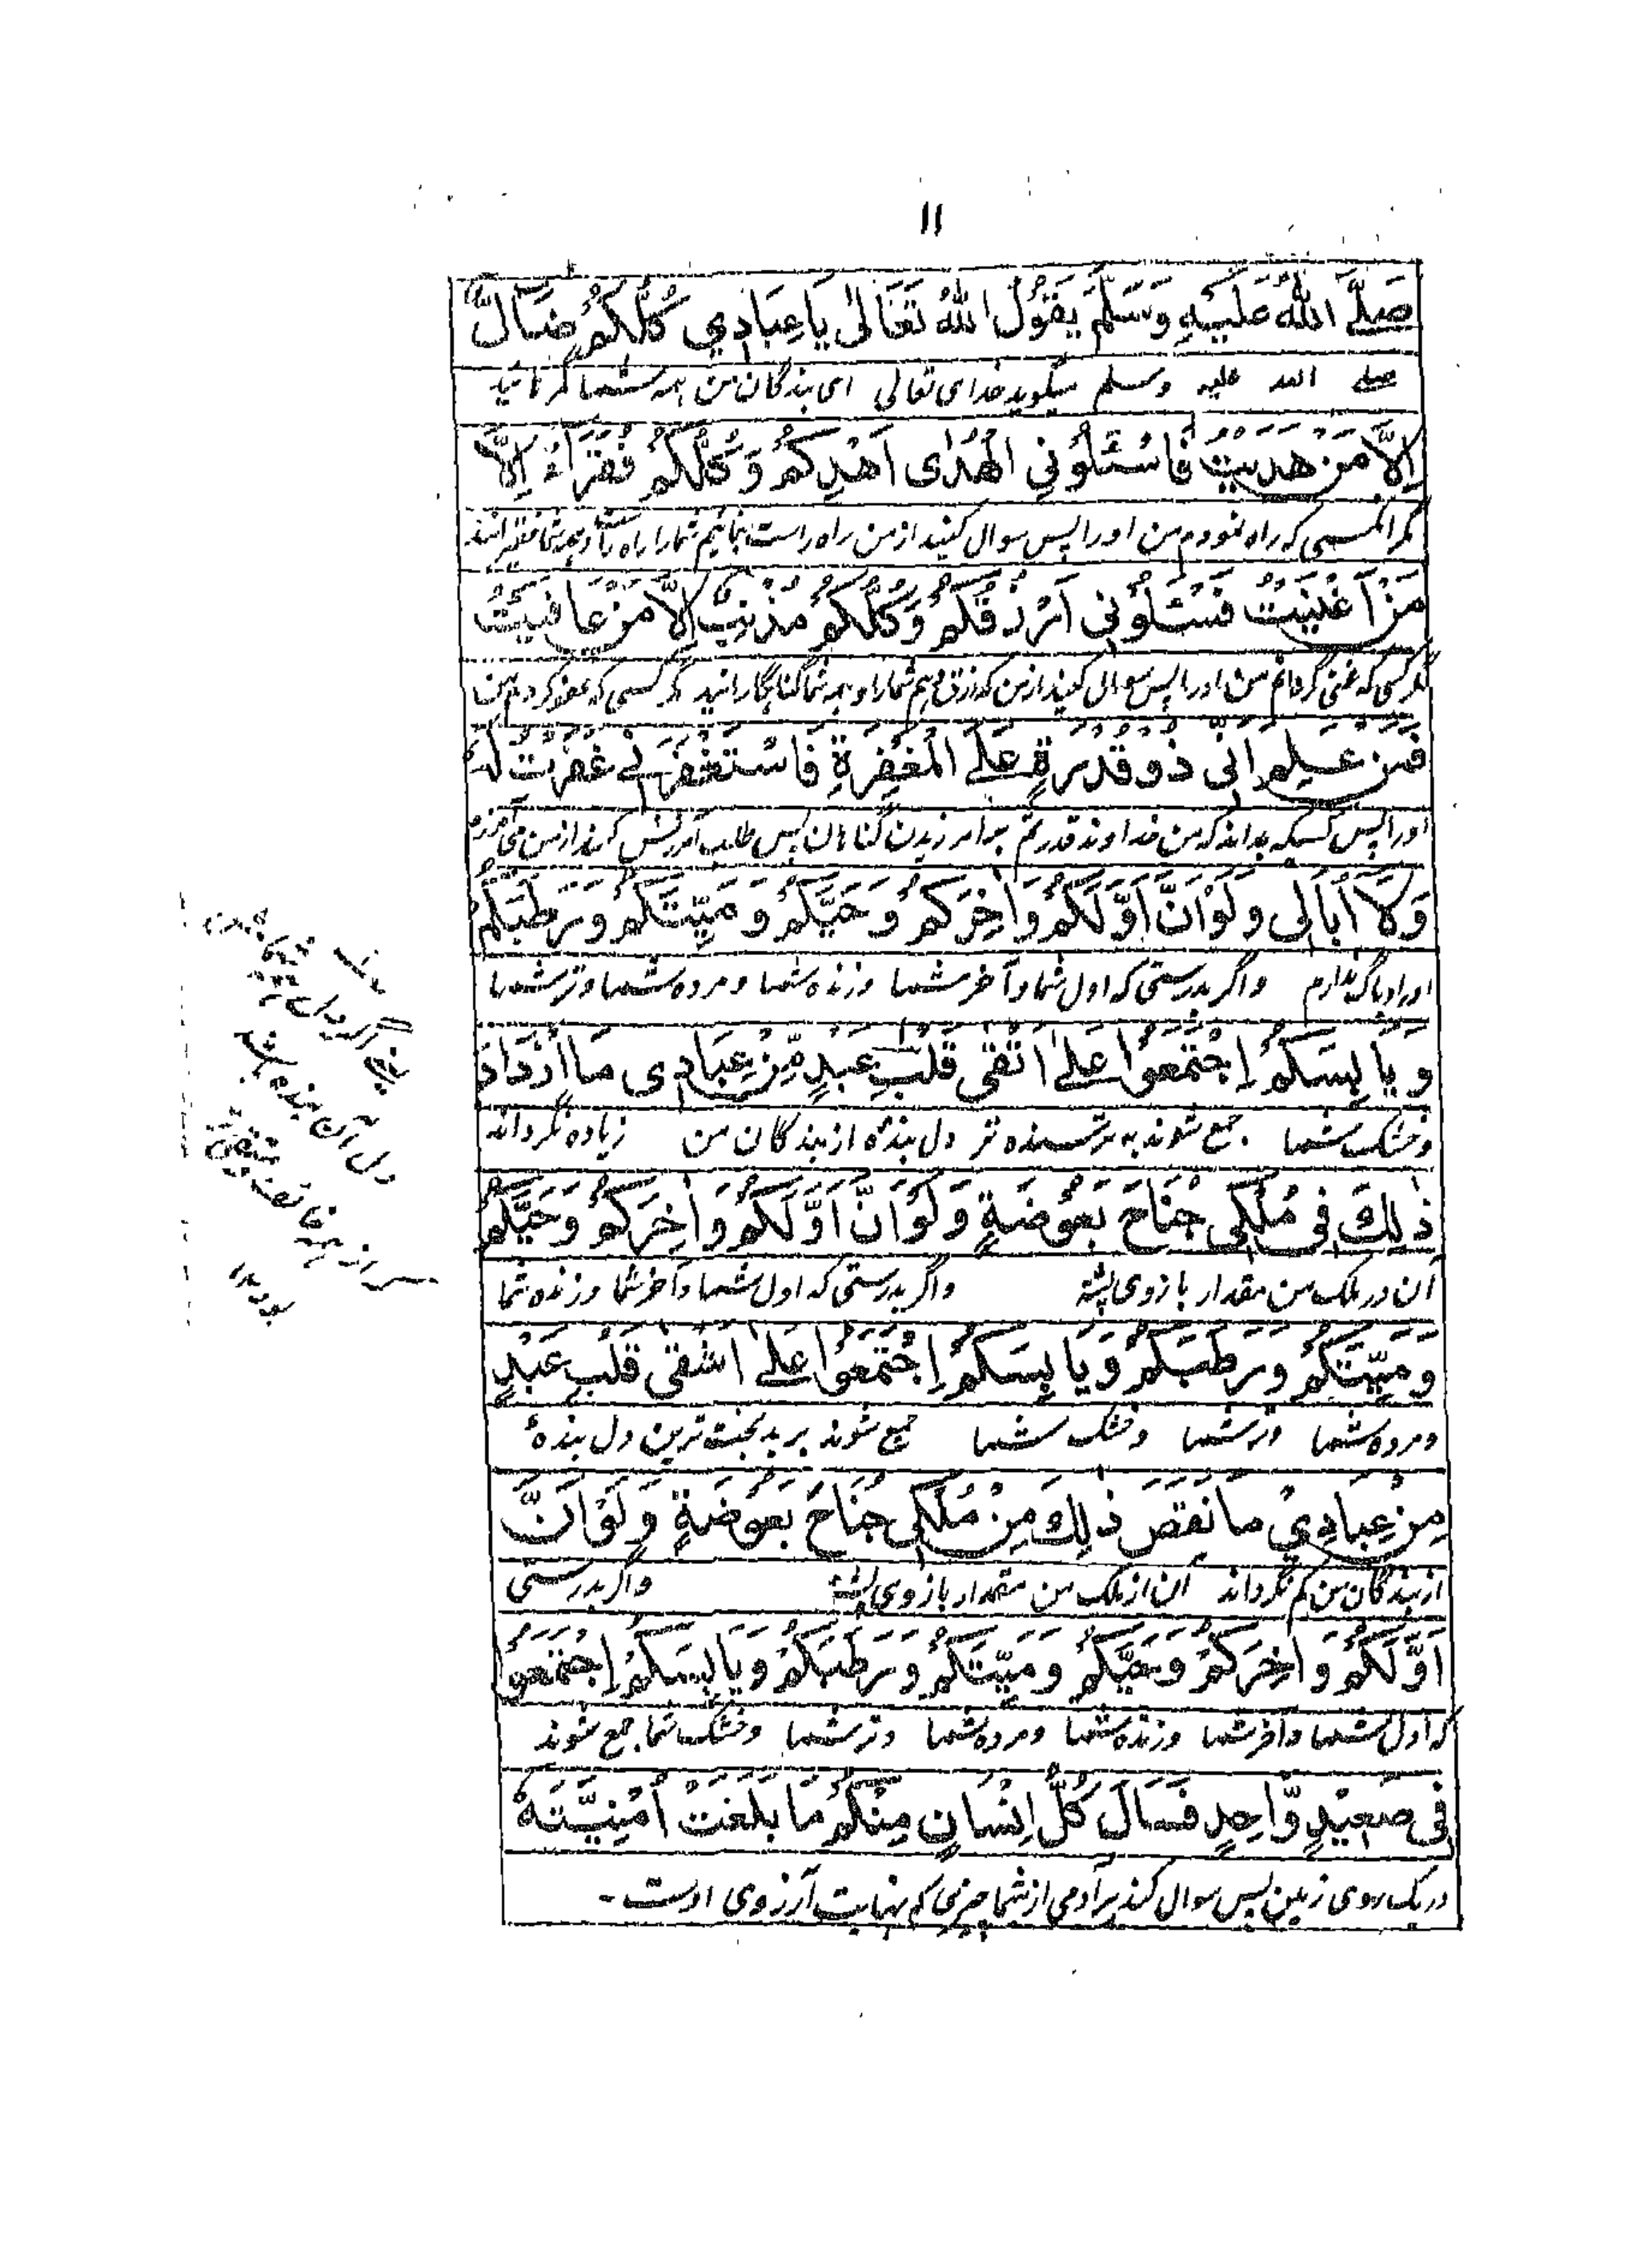 ۱۱
صَلَّے اللهُ عَلَيْهِ وَسَلَّمَ يَقُوْلُ اللهُ تَعَالٰى يَا عِبَادِي كُلُّكُمْ ضَالٌّ
صلے الله علیه وسلم میگوید خدای تعالی ای بندگان من همه شما گمراهید
اِلَّا مَنْ هَدَيْتُ فَاسْئَلُوْنِي الْهُدٰى اَهْدِكُمْ وَكُلُّكُمْ فُقَرَآءُ اِلَّا
مگر انکسی که راه نمودم من اورا پس سوال کنید از من راه راست بنمایم شمارا راه و همه شما فقیرانند
مَنْ اَغْنَيْتُ فَسْئَلُوْنِي اَرْزُقْكُمْ وَكُلُّكُمْ مُذْنِبٌ اِلَّا مَنْ عَافَيْتُ
مگر کسی که غنی گردانم من اورا پس سوال کنید از من که رزق دهم شمارا و همه شما گناهگارانید مگر کسی که عفو کردم من
فَمَنْ عَلِمَ اَنِّى ذُو قُدْرَةٍ عَلَے الْمَغْفِرَةِ فَاسْتَغْفَرَنِي غَفَرْتُ لَهُ
اورا پس کسیکه بداند که من خداوند قدرتم بر آمرزیدن گناهان پس طلب آمرزش کند از من می آمرزم
وَلَا اُبَالِى وَلَوْ اَنَّ اَوَّلَكُمْ وَاٰخِرَكُمْ وَحَيَّكُمْ وَمَيِّتَكُمْ وَرَطْبَكُمْ
اورا و باک ندارم واگر بدرستی که اول شما و آخر شما وزنده شما ومرده شما وتر شما
وَيَابِسَكُمْ اِجْتَمَعُوْا عَلٰے اَتْقٰى قَلْبِ عَبْدٍ مِّنْ عِبَادِى مَا ازْدَادَ
وخشک شما جمع شوند به ترسنده تر دل بنده از بندگان من زیاده نگرداند
ذٰلِكَ فِى مُلْكِى جَنَاحَ بَعُوْضَةٍ وَلَوْ اَنَّ اَوَّلَكُمْ وَاٰخِرَكُمْ وَحَيَّكُمْ
آن در ملک من مقدار بازوی پشه واگر بدرستی که اول شما وآخر شما وزنده شما
وَمَيِّتَكُمْ وَرَطْبَكُمْ وَيَابِسَكُمْ اِجْتَمَعُوْا عَلٰے اَشْقٰى قَلْبِ عَبْدٍ
ومرده شما وتر شما وخشک شما جمع شوند بر بدبخت ترین دل بندهٔ
مِنْ عِبَادِيْ مَا نَقَصَ ذٰلِكَ مِنْ مُلْكِى جَنَاحَ بَعُوْضَةٍ وَلَوْ اَنَّ
از بندگان من کم نگرداند آن از ملک من مقدار بازوی پشه واگر بدرستی
اَوَّلَكُمْ وَاٰخِرَكُمْ وَحَيَّكُمْ وَمَيِّتَكُمْ وَرَطْبَكُمْ وَيَابِسَكُمْ اِجْتَمَعُوْا
که اول شما وآخر شما وزنده شما ومرده شما وتر شما وخشک شما جمع شوند
فِى صَعِيْدٍ وَّاحِدٍ فَسَاَلَ كُلُّ اِنْسَانٍ مِنْكُمْ مَا بَلَغَتْ اُمْنِيَّتَهُ
در یک روی زمین پس سوال کند هر آدمی از شما چیزی که نهایت آرزوی اوست -
دل آن بنده